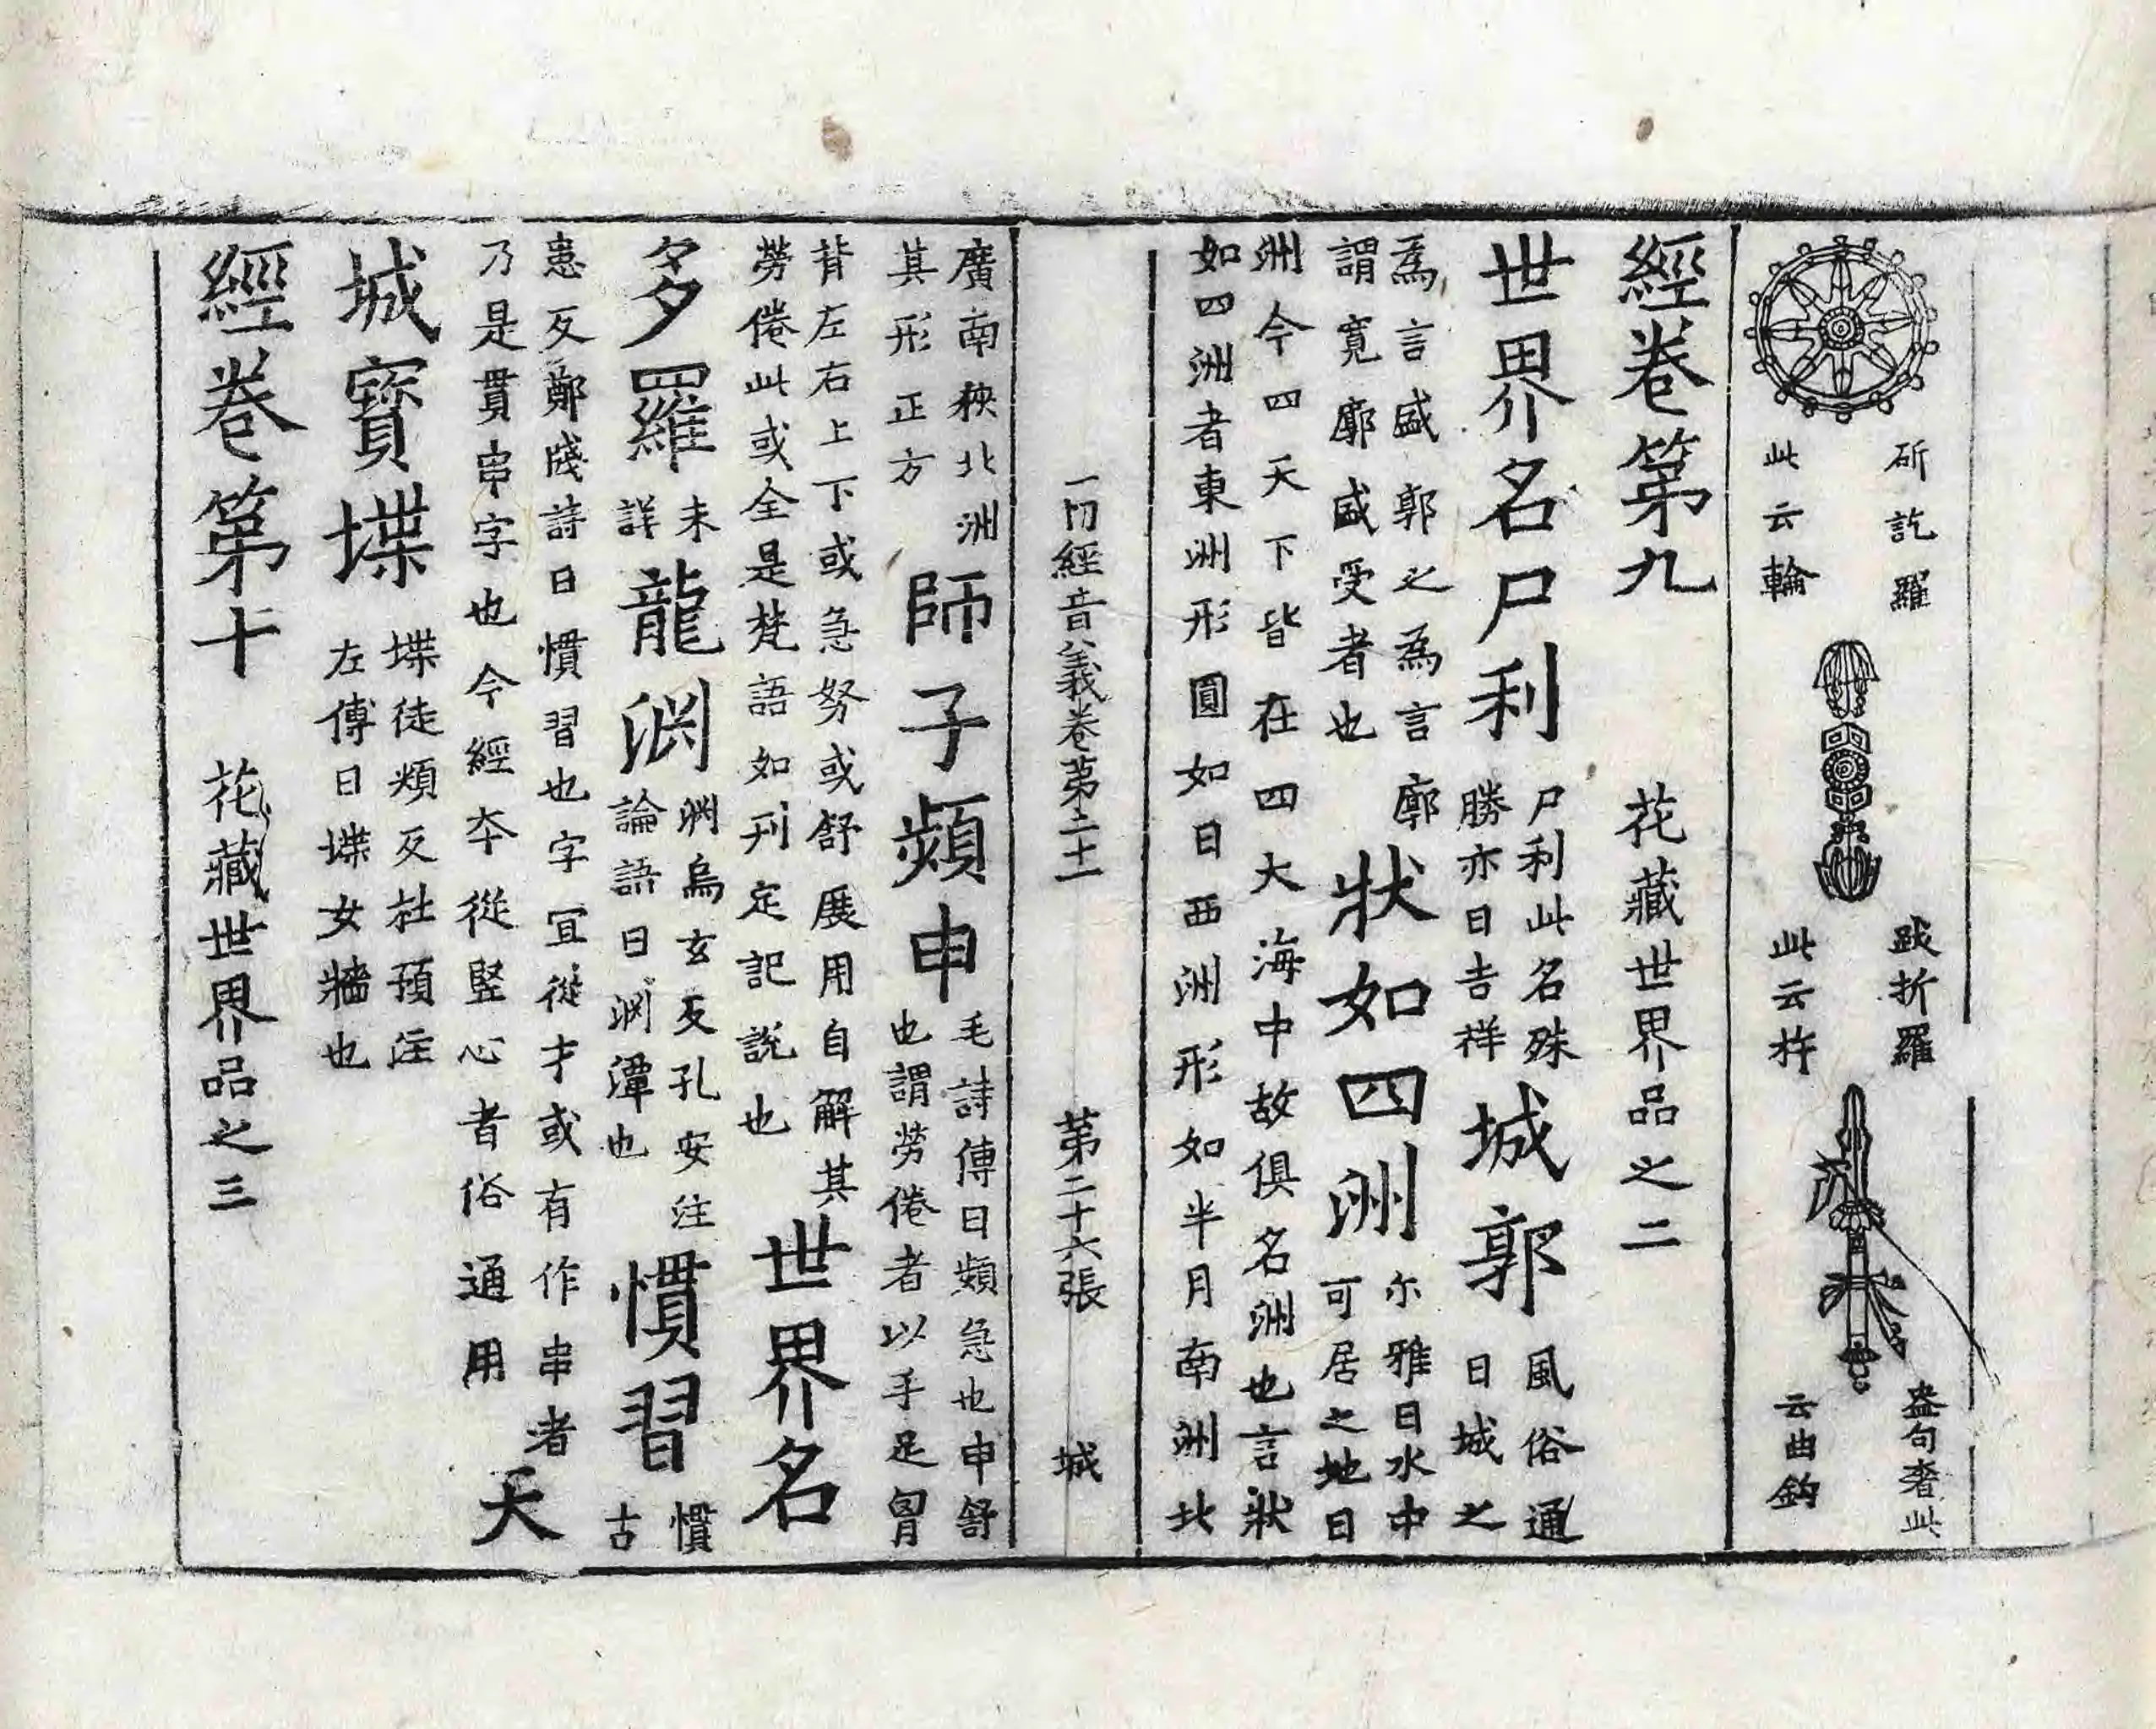 斫訖羅
此云輪
跋折羅
此云杵
盎句奢此
云曲鈎
經卷第九　花藏世界品之二
世界名尸利
尸利此名殊
勝亦曰吉祥
城郭
風俗通
曰城之
為言盛郭之為言廓
謂寬廓盛受者也
狀如四洲
尒雅曰水中
可居之地曰
洲今四天下皆在四大海中故俱名洲也言狀
如四洲者東洲形圓如日西洲形如半月南洲北
一切經音義卷第二十一　第二十六張　城
廣南狹北洲
其形正方
師子頻申
毛詩傳曰頻急也申舒
也謂勞倦者以手足胷
背左右上下或急努或舒展用自解其
勞倦此或全是梵語如刊定記說也
世界名
多羅
未
詳
龍渊
渊烏玄反孔安注
論語曰渊潭也
慣習
慣
古
患反鄭牋詩曰慣習也字宜從才或有作串者
乃是貫串字也今經夲從竪心者俗通用
天
城寶堞
堞徒頰反杜預注
左傳曰堞女牆也
經卷第十　花藏世界品之三